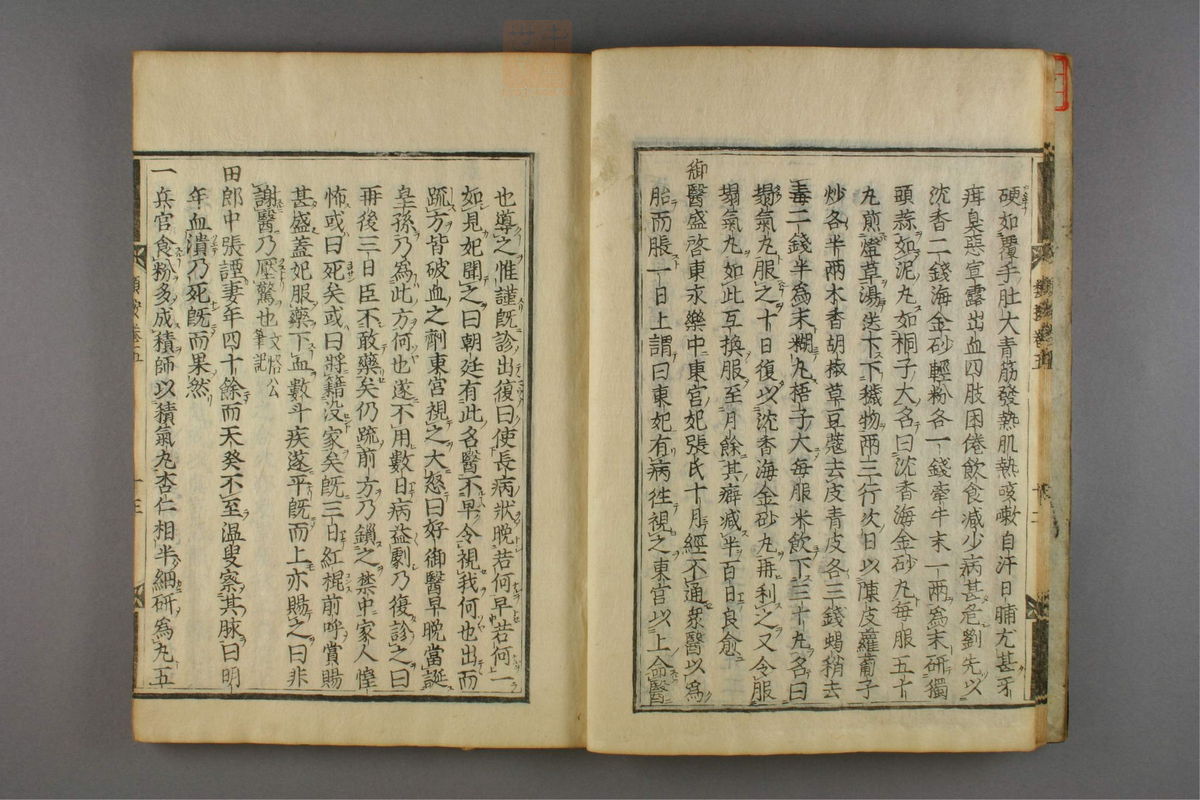 硬如覆手肚大青筋發熱肌熱咳嗽自汗日晡尤甚牙
疳臭惡宣露出血四肢困倦飲食減少病甚危劉先以
沈香二錢海金砂輕粉各一錢牽牛末一兩爲末研獨
頭蒜如泥丸如梧子大名曰沈香海金砂丸每服五十
丸煎燈草湯送下下穢物兩三行次日以陳皮蘿蔔子
炒各半兩木香胡椒草豆蔻去皮青皮各三錢蝎稍去
毒二錢半爲末糊丸梧子大每服米飲下三十丸名曰
塌氣丸服之十日復以沈香海金砂丸再利之又令服
塌氣丸如此互換服至月餘其癖減半百日良愈
御醫盛啓東永樂中東宮妃張氏十月經不通衆醫以爲
胎而脹一日上謂曰東妃有病往視之東宮以上命醫
也導之惟謹旣診出復曰使長病狀晚若何早若何一
如見妃聞之曰朝廷有此名醫不早令視我何也出而
疏方皆破血之劑東宮視之大怒曰好御醫早晚當誕
皇孫乃爲此方何也遂不用數日病益劇乃復診之曰
再後三日臣不敢藥矣仍疏前方乃鎖之禁中家人惶
怖或曰死矣或曰將籍沒家矣旣三日紅棍前呼賞賜
甚盛蓋妃服藥下血數斗疾遂平旣而上亦賜之曰非
謝醫乃壓驚也文恪公筆記
田郎中張諲妻年四十餘而天癸不至溫叟察其脉曰明
年血潰乃死旣而果然
一兵官食粉多成積師以積氣丸杏仁相半細研爲丸五